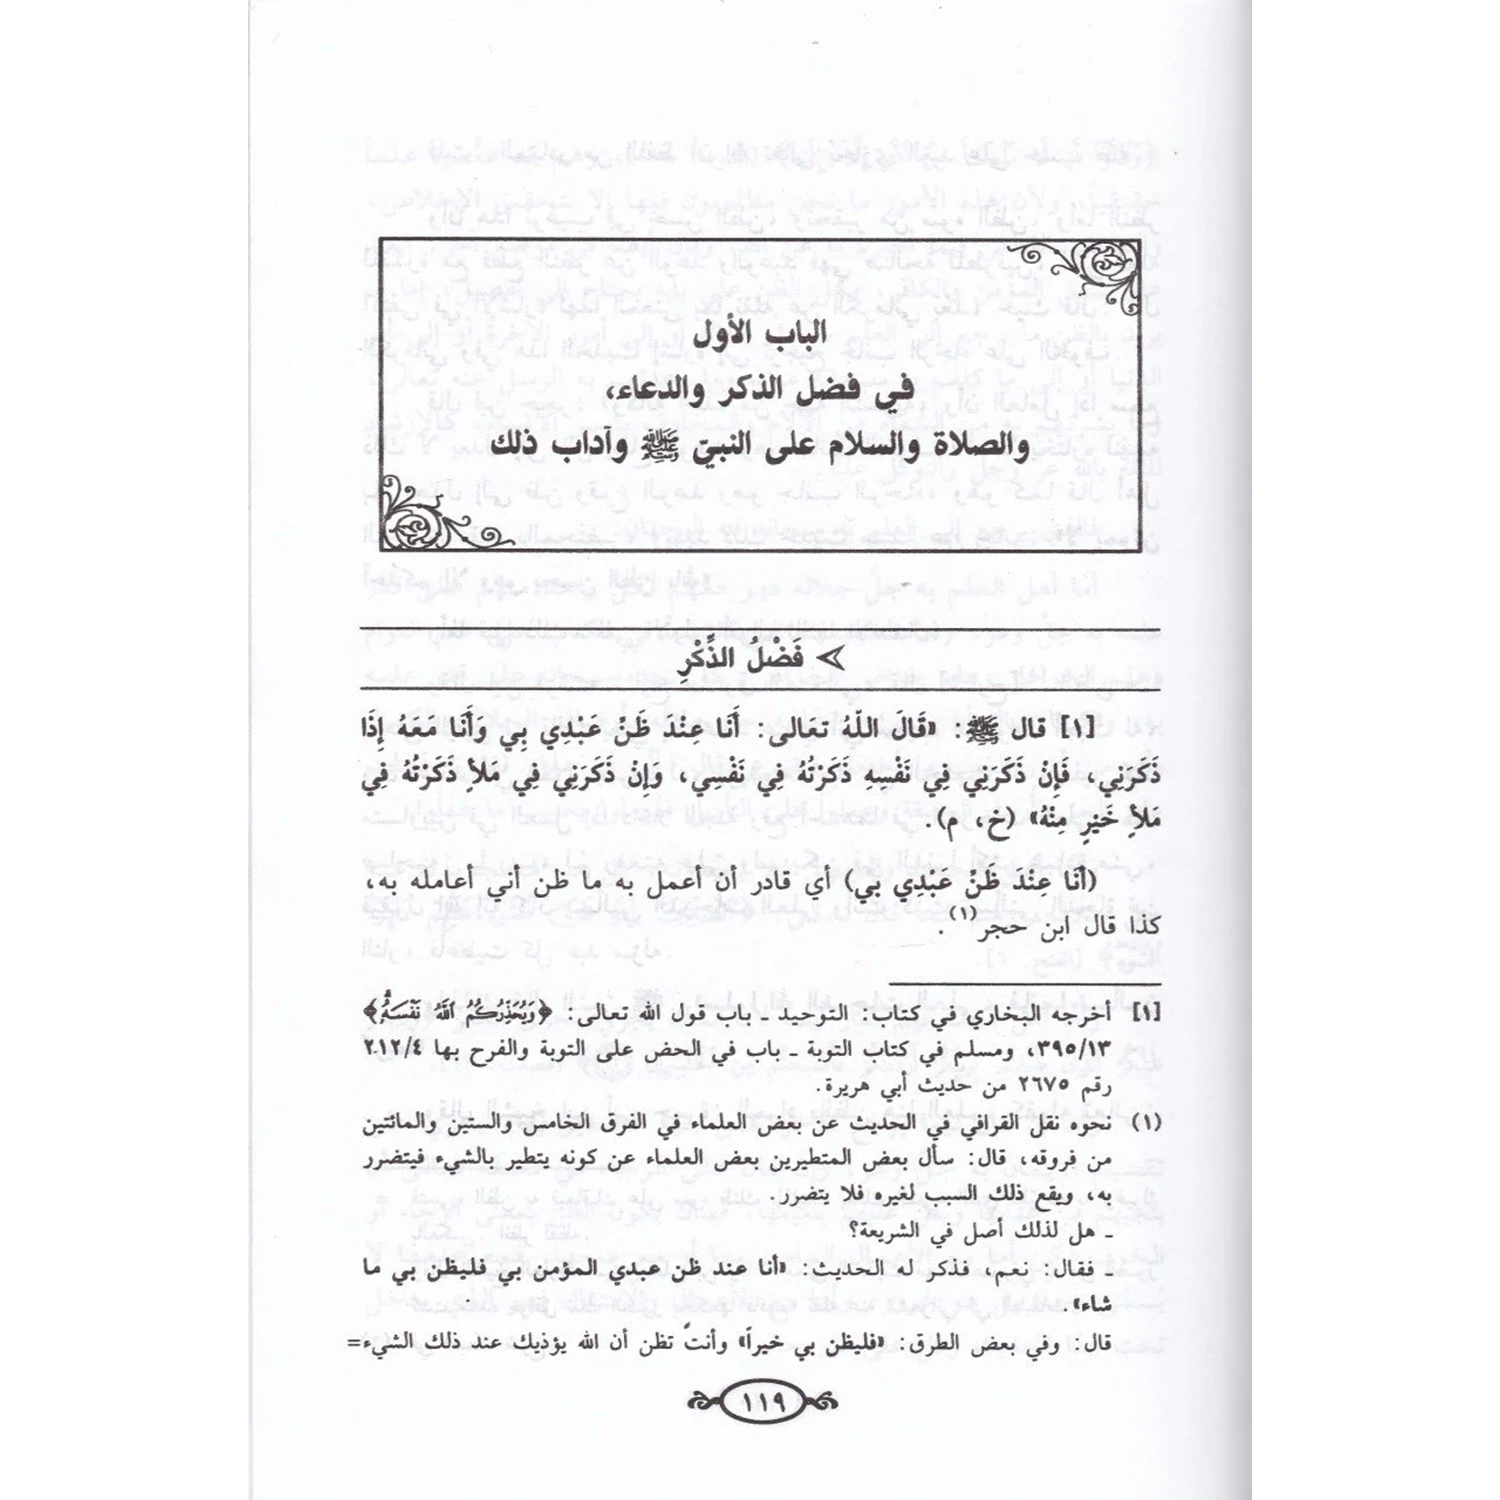 الباب الأول
في فضل الذكر والدعاء،
والصلاة والسلام على النبيّ ﷺ وآداب ذلك
فَضْلُ الذِّكْرِ
[١] قال ﷺ: «قَالَ اللّهُ تعَالى: أَنَا عِنْدَ ظَنِّ عَبْدِي بِي وَأَنا مَعَهُ إِذَا
ذَكَرَنِي، فَإِنْ ذَكَرَنِي فِي نَفْسِهِ ذَكَرْتُهُ فِي نَفْسِي، وَإِنْ ذَكَرَنِي فِي مَلأٍ ذَكَرْتُهُ فِي
مَلأٍ خَيْرٍ مِنْهُ» (خ، م).
(أَنَا عِنْدَ ظَنِّ عَبْدِي بي) أي قادر أن أعمل به ما ظن أني أعامله به،
كذا قال ابن حجر(١).
[١] أخرجه البخاري في كتاب: التوحيد ـ باب قول الله تعالى: ﴿وَيُحَذِّرُكُمُ اللَّهُ نَفْسَهُۥ﴾
٣٩٥/١٣، ومسلم في كتاب التوبة ـ باب في الحض على التوبة والفرح بها ٢١٢/٤
رقم ٢٦٧٥ من حديث أبي هريرة.
(١) نحوه نقل القرافي في الحديث عن بعض العلماء في الفرق الخامس والستين والمائتين
من فروقه، قال: سأل بعض المتطيرين بعض العلماء عن كونه يتطير بالشيء فيتضرر
به، ويقع ذلك السبب لغيره فلا يتضرر.
ـ هل لذلك أصل في الشريعة؟
ـ فقال: نعم، فذكر له الحديث: «أنا عند ظن عبدي المؤمن بي فليظن بي ما
شاء».
قال: وفي بعض الطرق: «فليظن بي خيراً» وأنت تظن أن الله يؤذيك عند ذلك الشيء=
١١٩